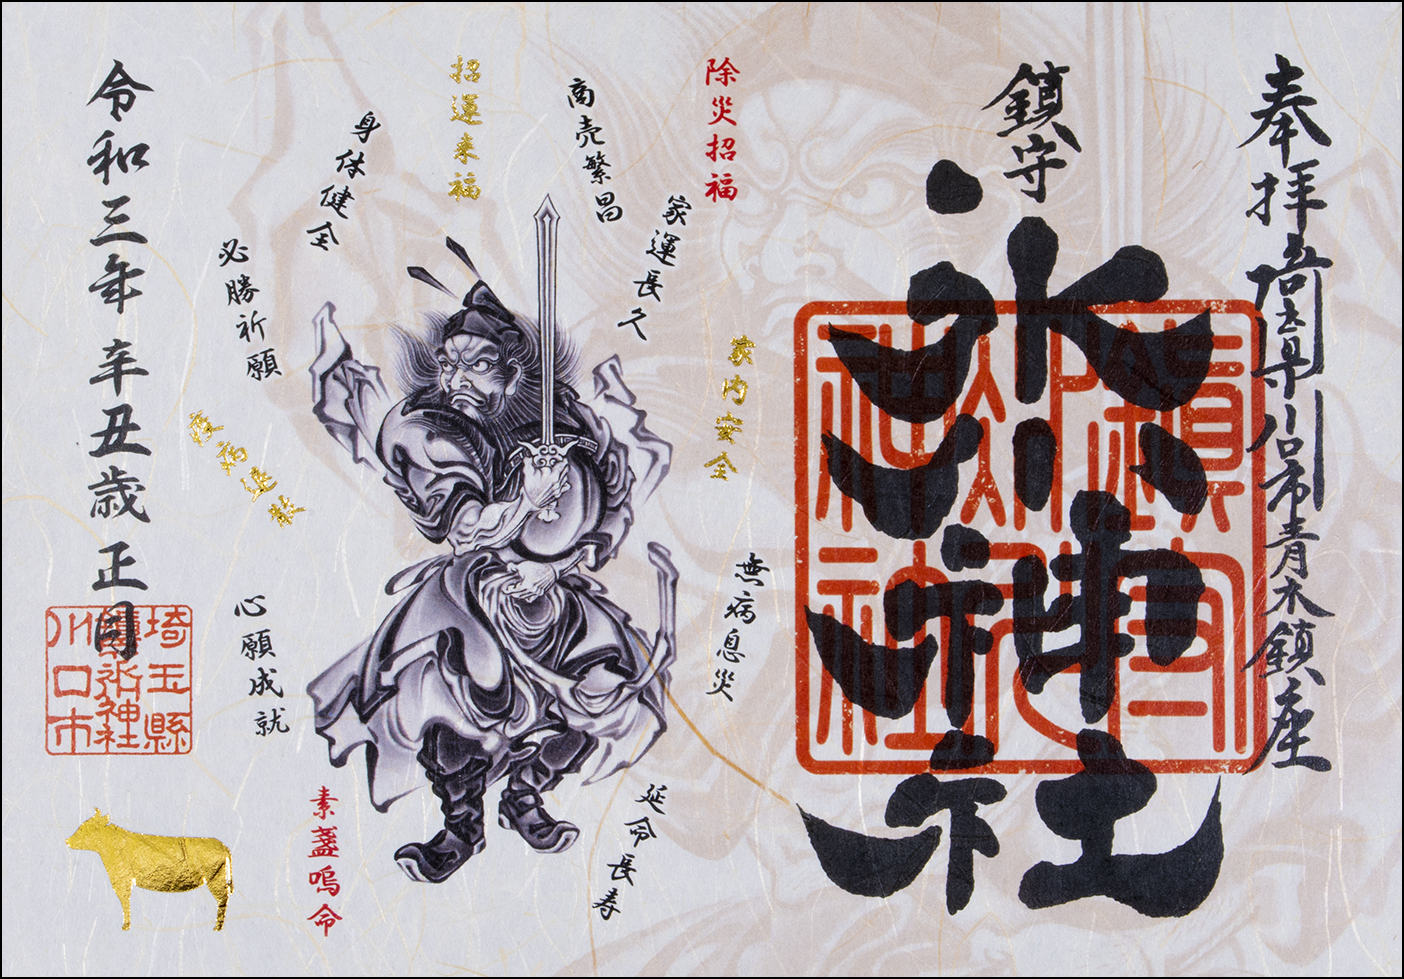 奉拝 埼玉県川口市青木鎮座
鎮守
氷川神社
鎮守
氷川
神社
除災招福
家内安全
無病息災
家運長久
商売繁昌
招運来福
身体健全
必勝祈願
心願成就
延命長寿
素盞嗚命
令和三年 辛丑歳 正月
埼玉縣
氷神社
川口市